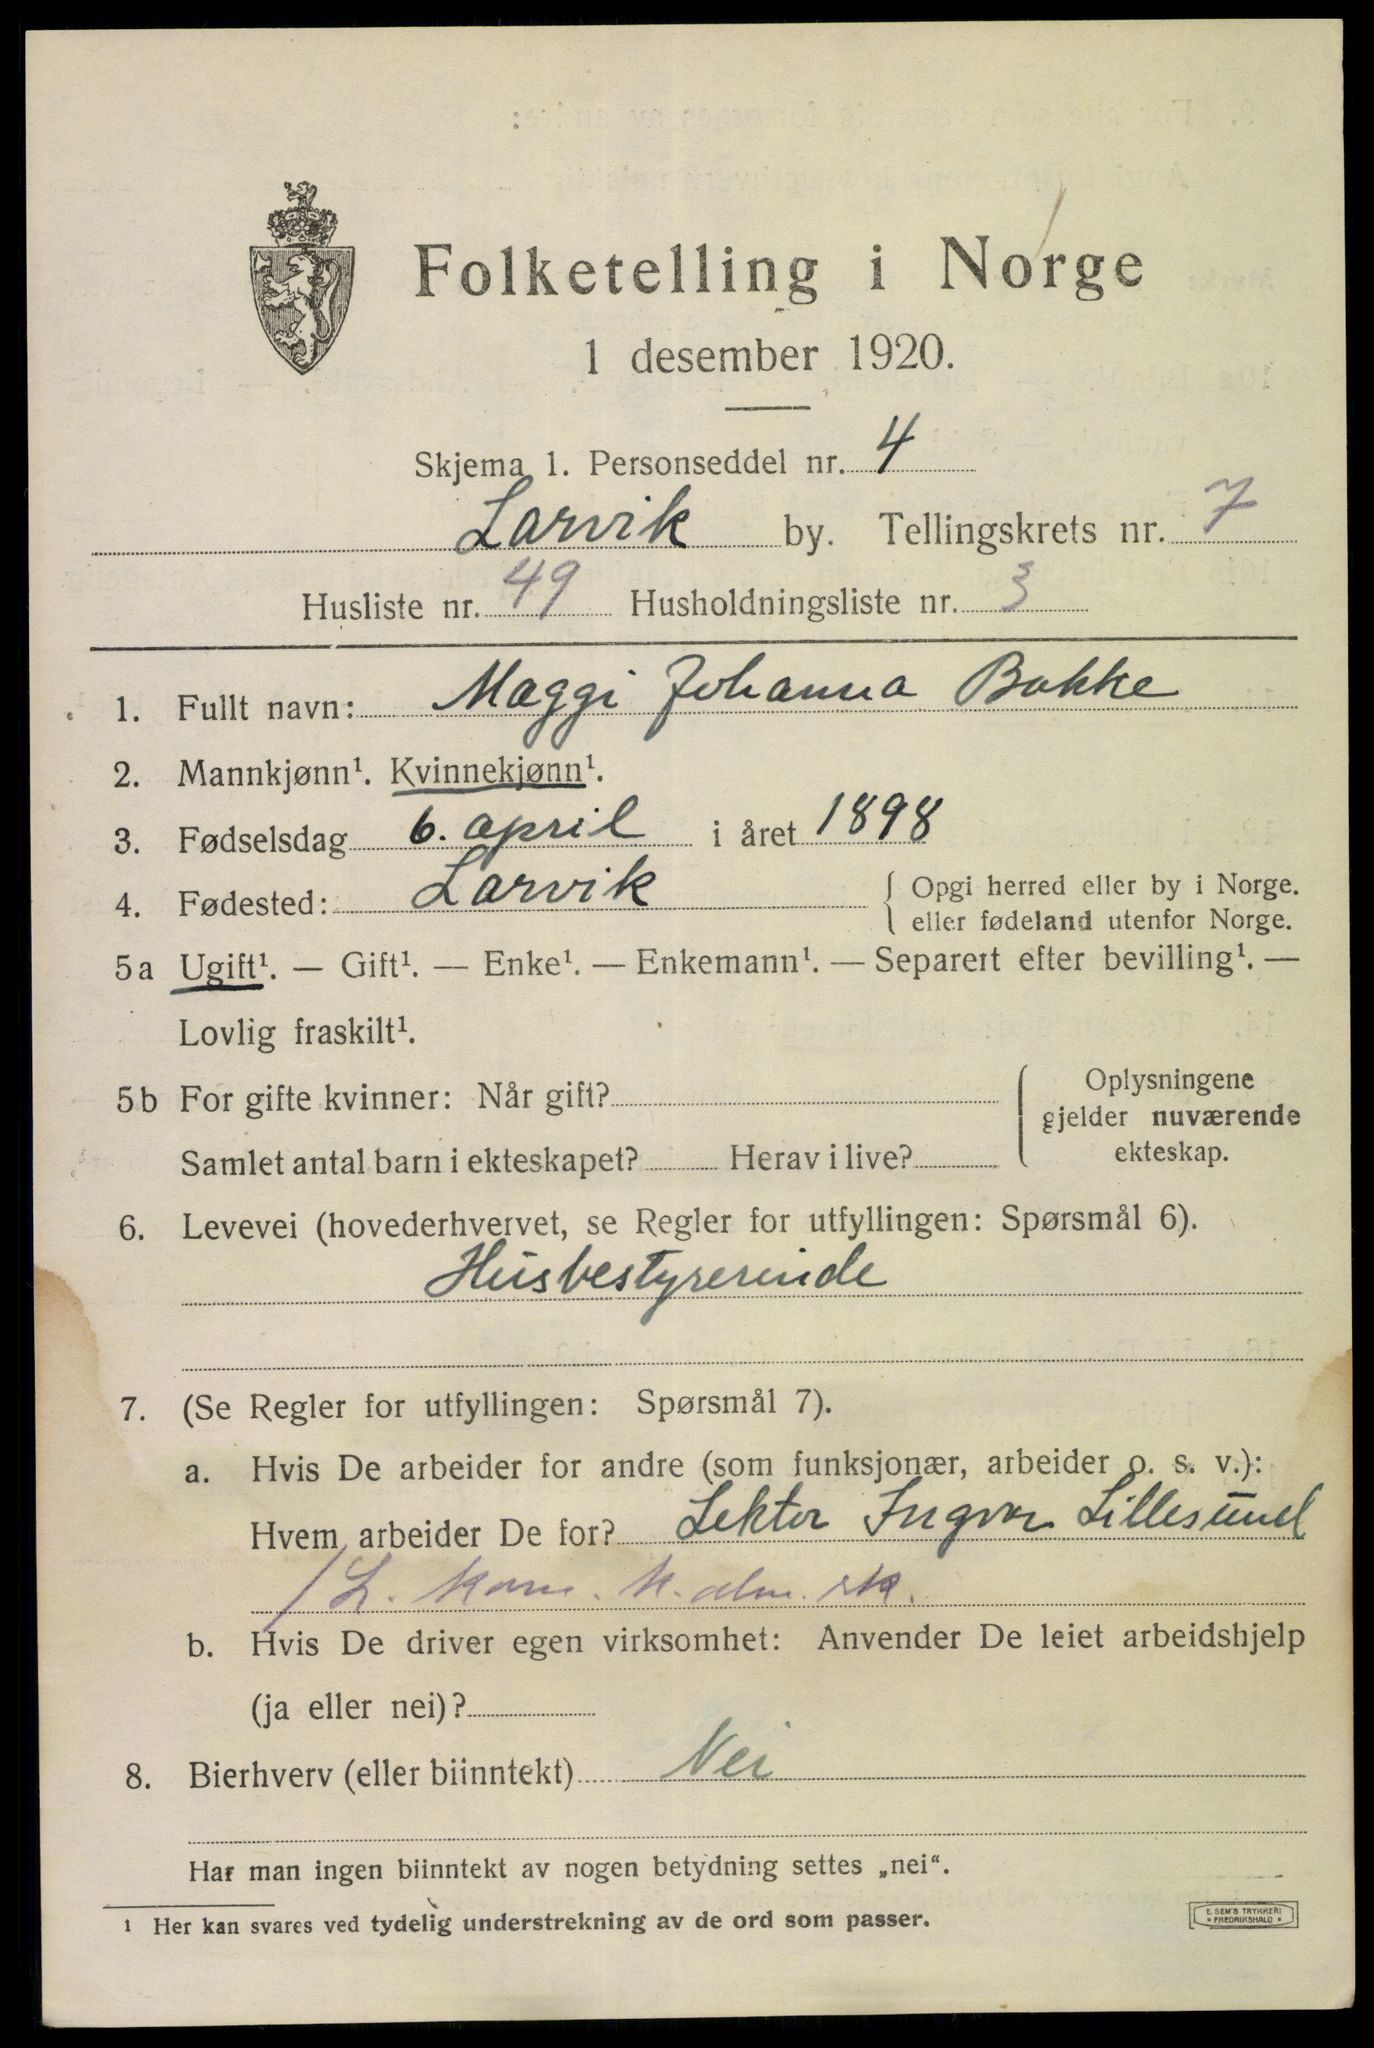 Folketelling i Norge
1 desember 1920.
Skjema 1. Personseddel nr. 4
Larvik by. Tellingskrets nr. 7
Husliste nr. 49 Husholdningsliste nr. 3
1. Fullt navn: Maggi Johanna Bakke
2. Mannkjønn¹. Kvinnekjønn¹.
3. Fødselsdag 6. april i året 1898
4. Fødested: Larvik { Opgi herred eller by i Norge.
eller fødeland utenfor Norge.
5a Ugift¹. — Gift¹. — Enke¹. — Enkemann¹. — Separert efter bevilling¹. —
Lovlig fraskilt¹.
5b For gifte kvinner: Når gift?
Samlet antal barn i ekteskapet? Herav i live?
Oplysningene
gjelder nuværende
ekteskap.
6. Levevei (hovederhvervet, se Regler for utfyllingen: Spørsmål 6).
Husbestyrerinde
7. (Se Regler for utfyllingen: Spørsmål 7).
a. Hvis De arbeider for andre (som funksjonær, arbeider o. s. v.):
Hvem arbeider De for? Lektor Ingvar Lillesund
b. Hvis De driver egen virksomhet: Anvender De leiet arbeidshjelp
(ja eller nei)?
8. Bierhverv (eller biinntekt) Nei
Har man ingen biinntekt av nogen betydning settes „nei“.
¹ Her kan svares ved tydelig understrekning av de ord som passer.
E. SEM'S TRYKKERI
• FREDRIKSHALD •